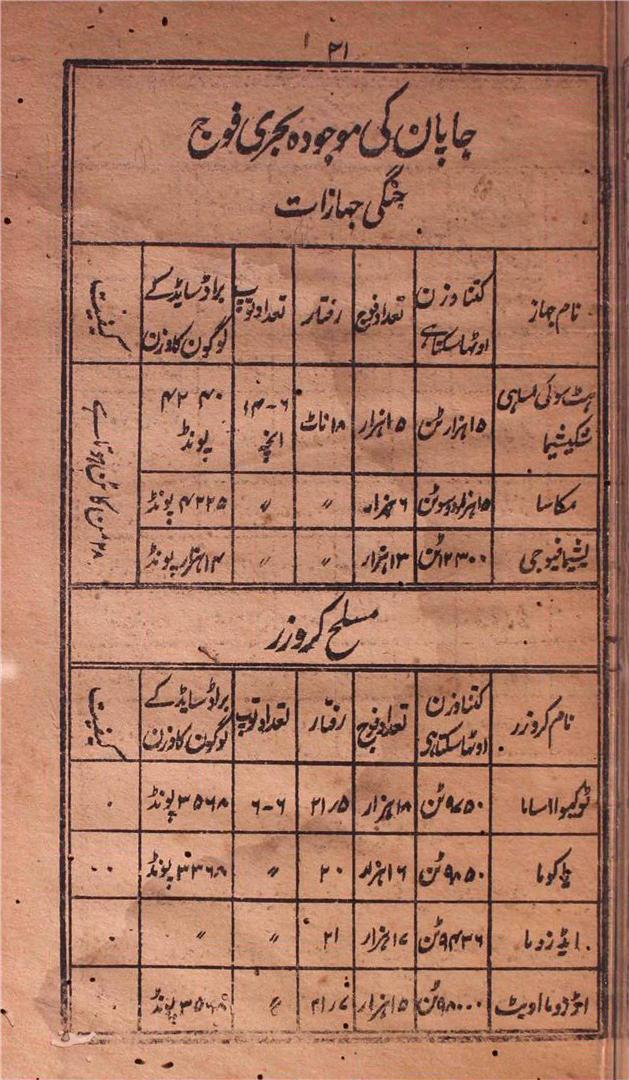 ۲۱
جاپان کی موجودہ بحری فوج
جنگی جہازات
نام جہاز | کتنا وزن اوٹھا سکتا ہے | تعداد فوج | رفتار | تعداد توپ | براڈ سایڈ کے گولون کا وزن | کیفیت
شکیشیما | ۱۵ ہزار ٹن | ۱۵ ہزار | ۱۸ ناٹ | ۶-۱۴ انچہ | ۴۲۴۰ پونڈ
مکاسا | ۱۵ ہزار دو سو ٹن | ۱۶ ہزار | 〃 | 〃 | ۴۲۲۵ پونڈ
یشیما فیوجی | ۱۲۳۰۰ ٹن | ۱۳ ہزار | 〃 | 〃 | ۱۴ ہزار پونڈ
۲۸ من کا ٹن ہوتا ہے
مسلح کروزر
نام کروزر | کتنا وزن اوٹھا سکتا ہے | تعداد فوج | رفتار | تعداد توپ | براڈ سایڈ کے گولون کا وزن | کیفیت
ٹوکیوا اساما | ۹۷۵۰ ٹن | ۱۸ ہزار | ۲۱٫۵ | ۶-۶ | ۳۵۶۸ پونڈ | ۰
یاکوما | ۹۸۵۰ ٹن | ۱۶ ہزار | ۲۰ | 〃 | ۳۳۶۸ پونڈ | ۰۰
ایڈزوما | ۹۴۳۶ ٹن | ۱۷ ہزار | ۲۱ | 〃 | 〃 | ۰
۹۸۰۰۰ ٹن | ۱۵ ہزار | ۲۱٫۷ | 〃 | ۳۵۶۸ پونڈ | ۰